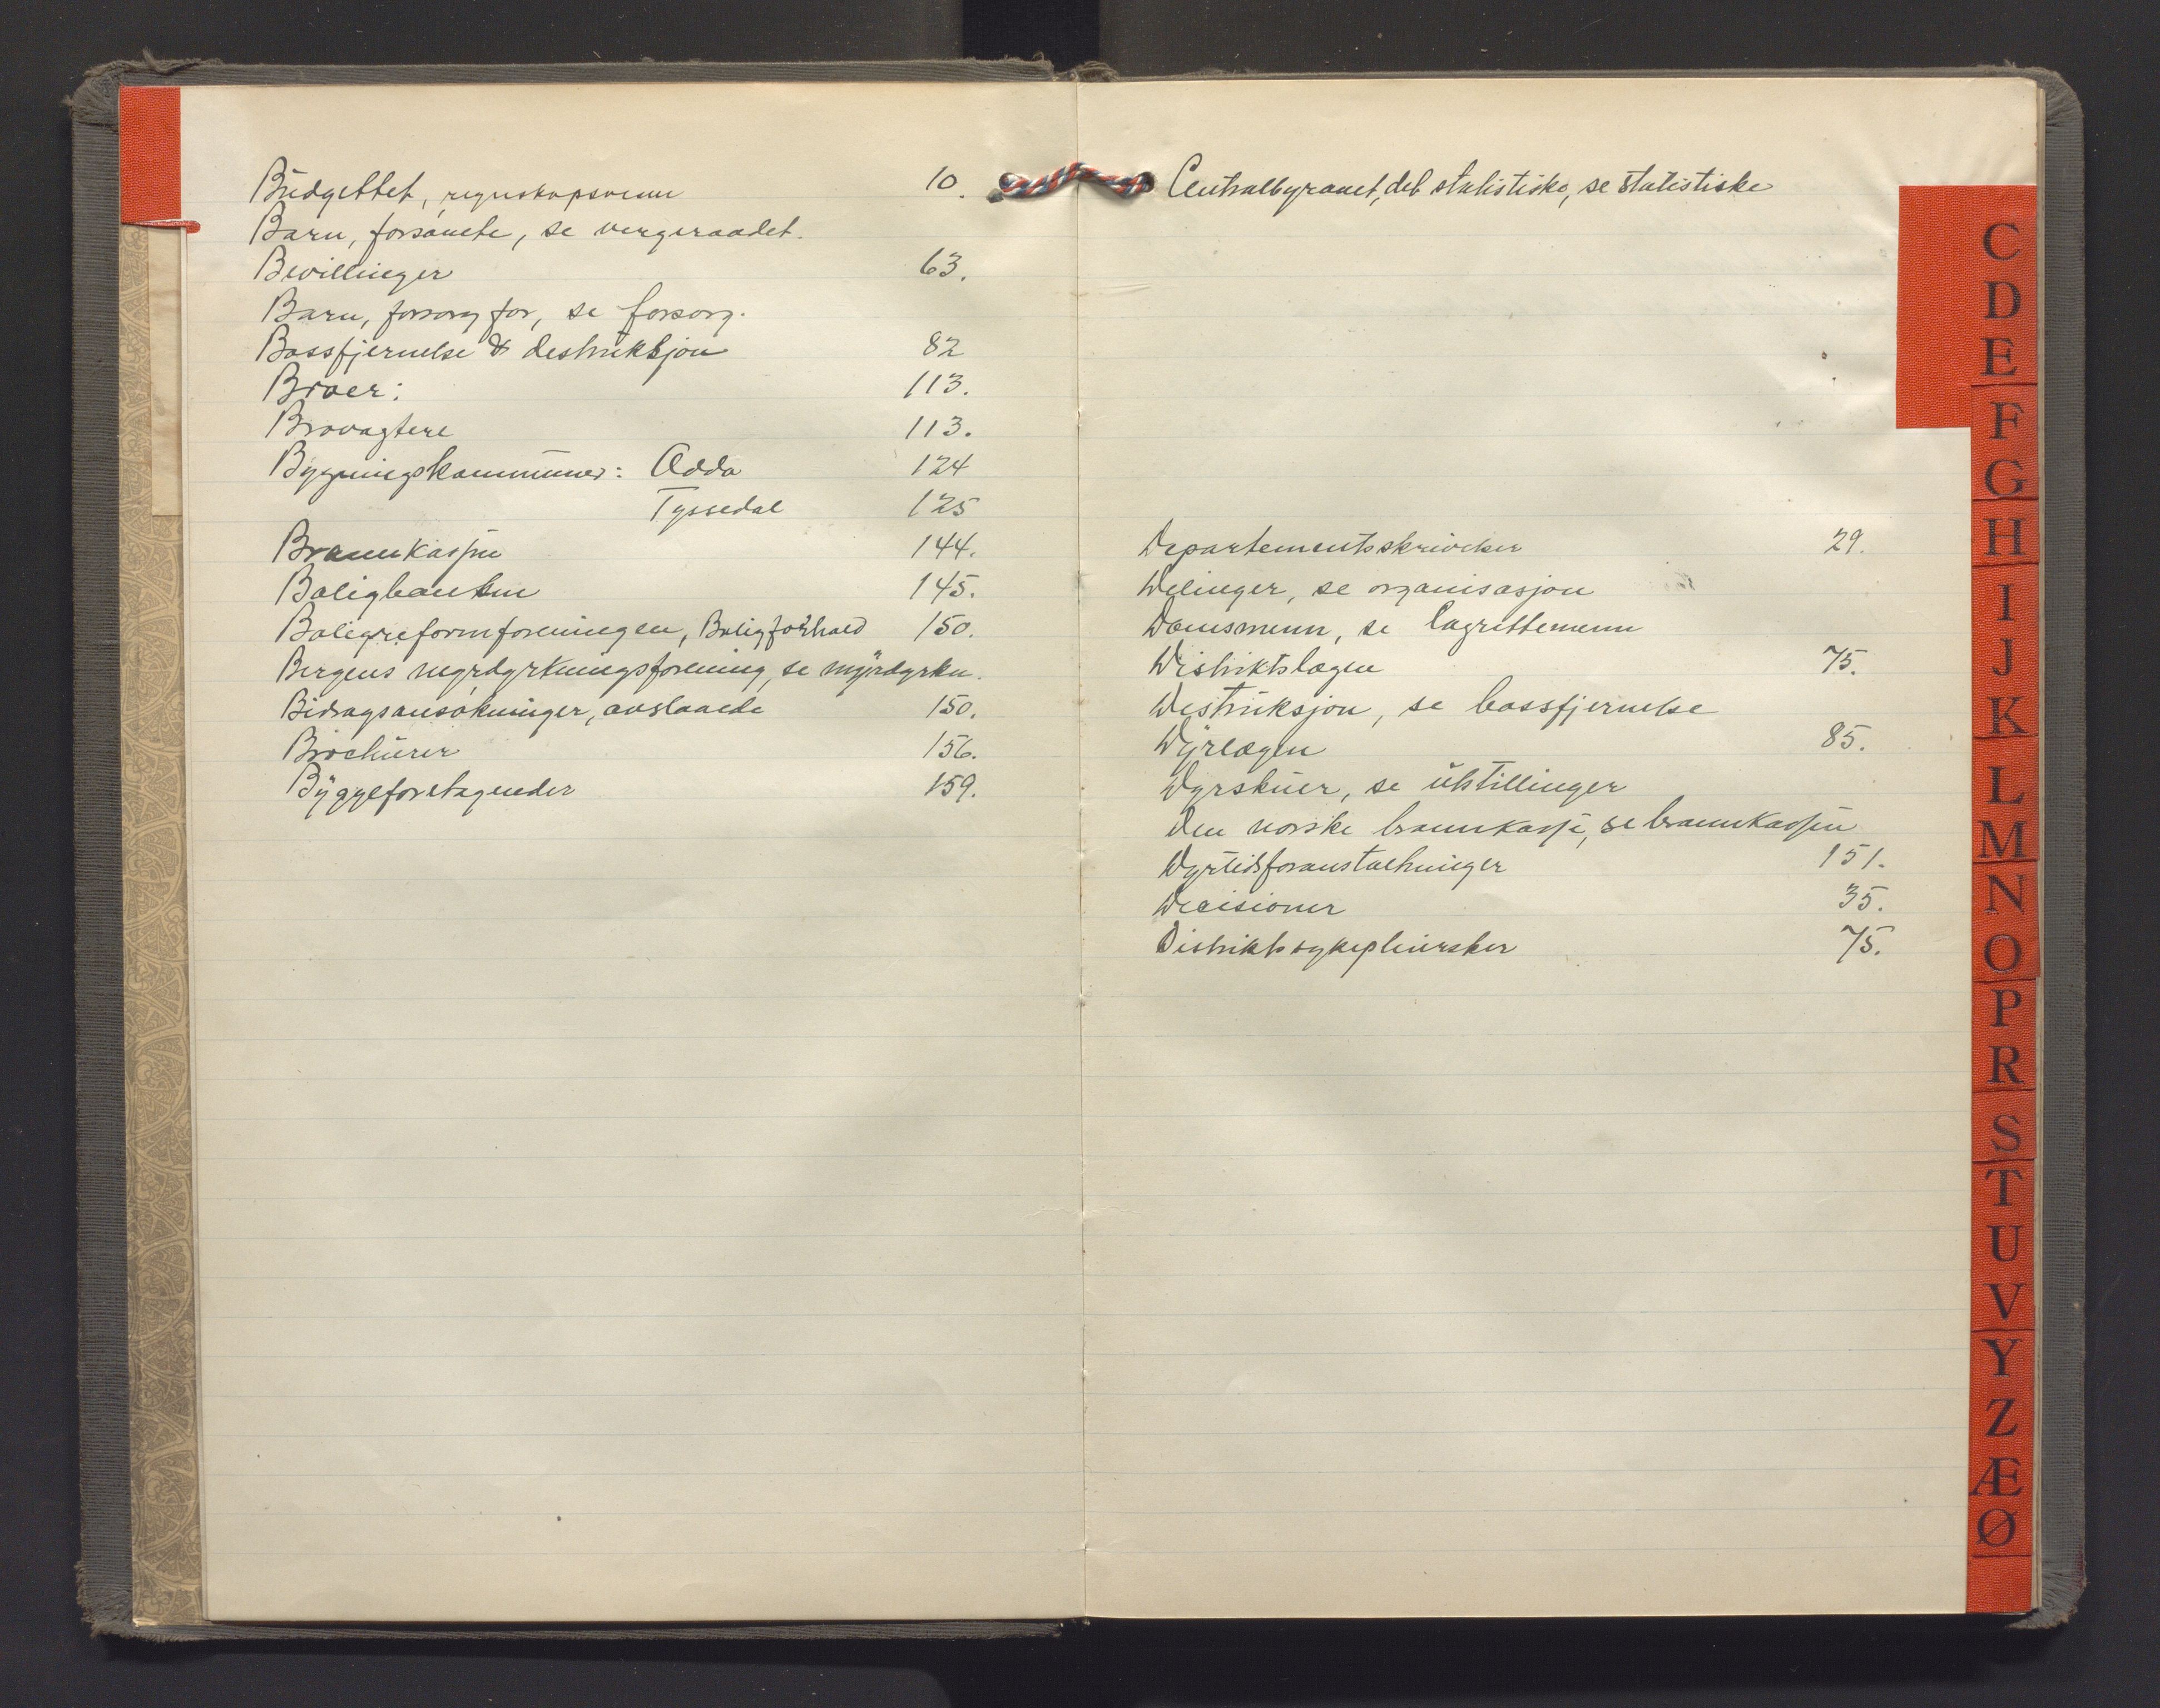 Budgettet, regnskapsvesen 10.
Barn, forsømte, se vergeraadet.
Bevillinger 63.
Barn, forsorg for, se forsorg.
Bossfjernelse & destruktsjon 82
Broer: 113.
Brovagtere 113.
Bygningskommuner: Odda 124
Tyssedal 125
Brannkassen 144.
Boligbanken 145.
Boligreformforeningen, Boligforhold 150.
Bergens myrdyrkningsforening, se myrdyrkn.
Bidragsansøkninger, avslaaede 150.
Brochurer 156.
Byggeforetagender 159.
Centralbyraaet, det statistiske, se statistiske
Departementsskrivelser 29.
Delinger, se organisasjon
Domsmenn, se lagrettemenn
Distriktslægen 75.
Destruksjon, se bossfjernelse
Dyrlægen 85.
Dyrskuer, se utstillinger
Den norske brannkasse, se brannkassen
Dyrtidsforanstaltninger 151.
Decisioner 35.
Distriktssykepleiersker 75.
C
D
E
F
G
H
I
J
K
L
M
N
O
P
R
S
T
U
V
Y
Z
Æ
Ø